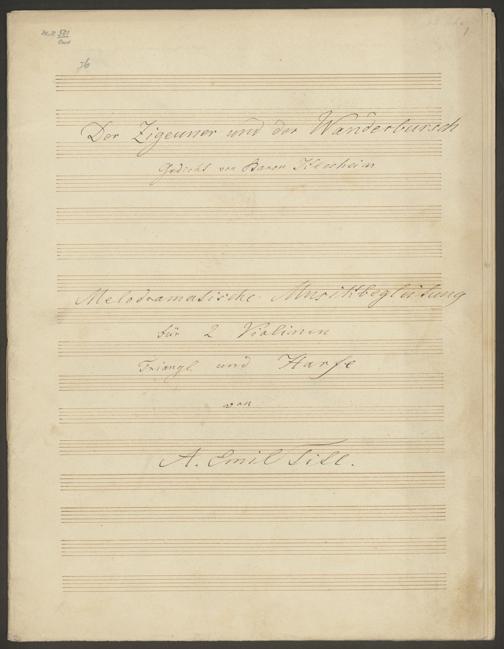 76
1
Der Zigeuner und der Wanderbursch
Gedicht von Baron
Melodramatische Musikbegleitung
für 2 Violinen
Triangl und Harfe
von
A. Emil Titl.